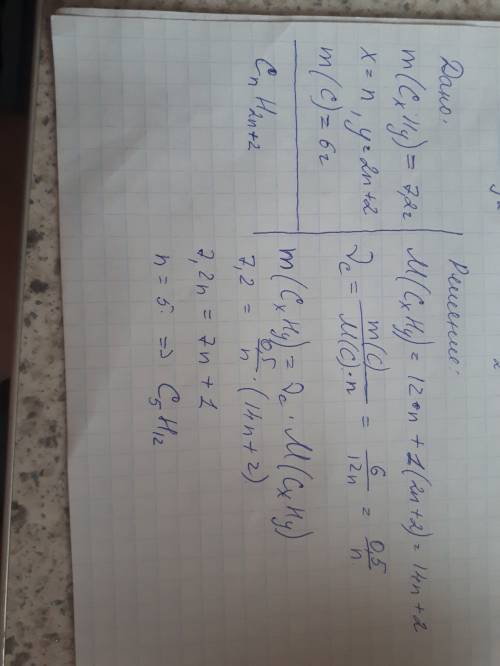 Дано:
m(CxHy) = 7,2г
x = n, y = 2n+2
m(C) = 6г
CnH2n+2
Решение:
M(CxHy) = 12·n + 1(2n+2) = 14n+2
νc = m(C) / M(C)·n = 6 / 12n = 0,5 / n
m(CxHy) = νc · M(CxHy)
7,2 = 0,5 / n · (14n+2)
7,2n = 7n + 1
n = 5. ⇒ C5H12
2